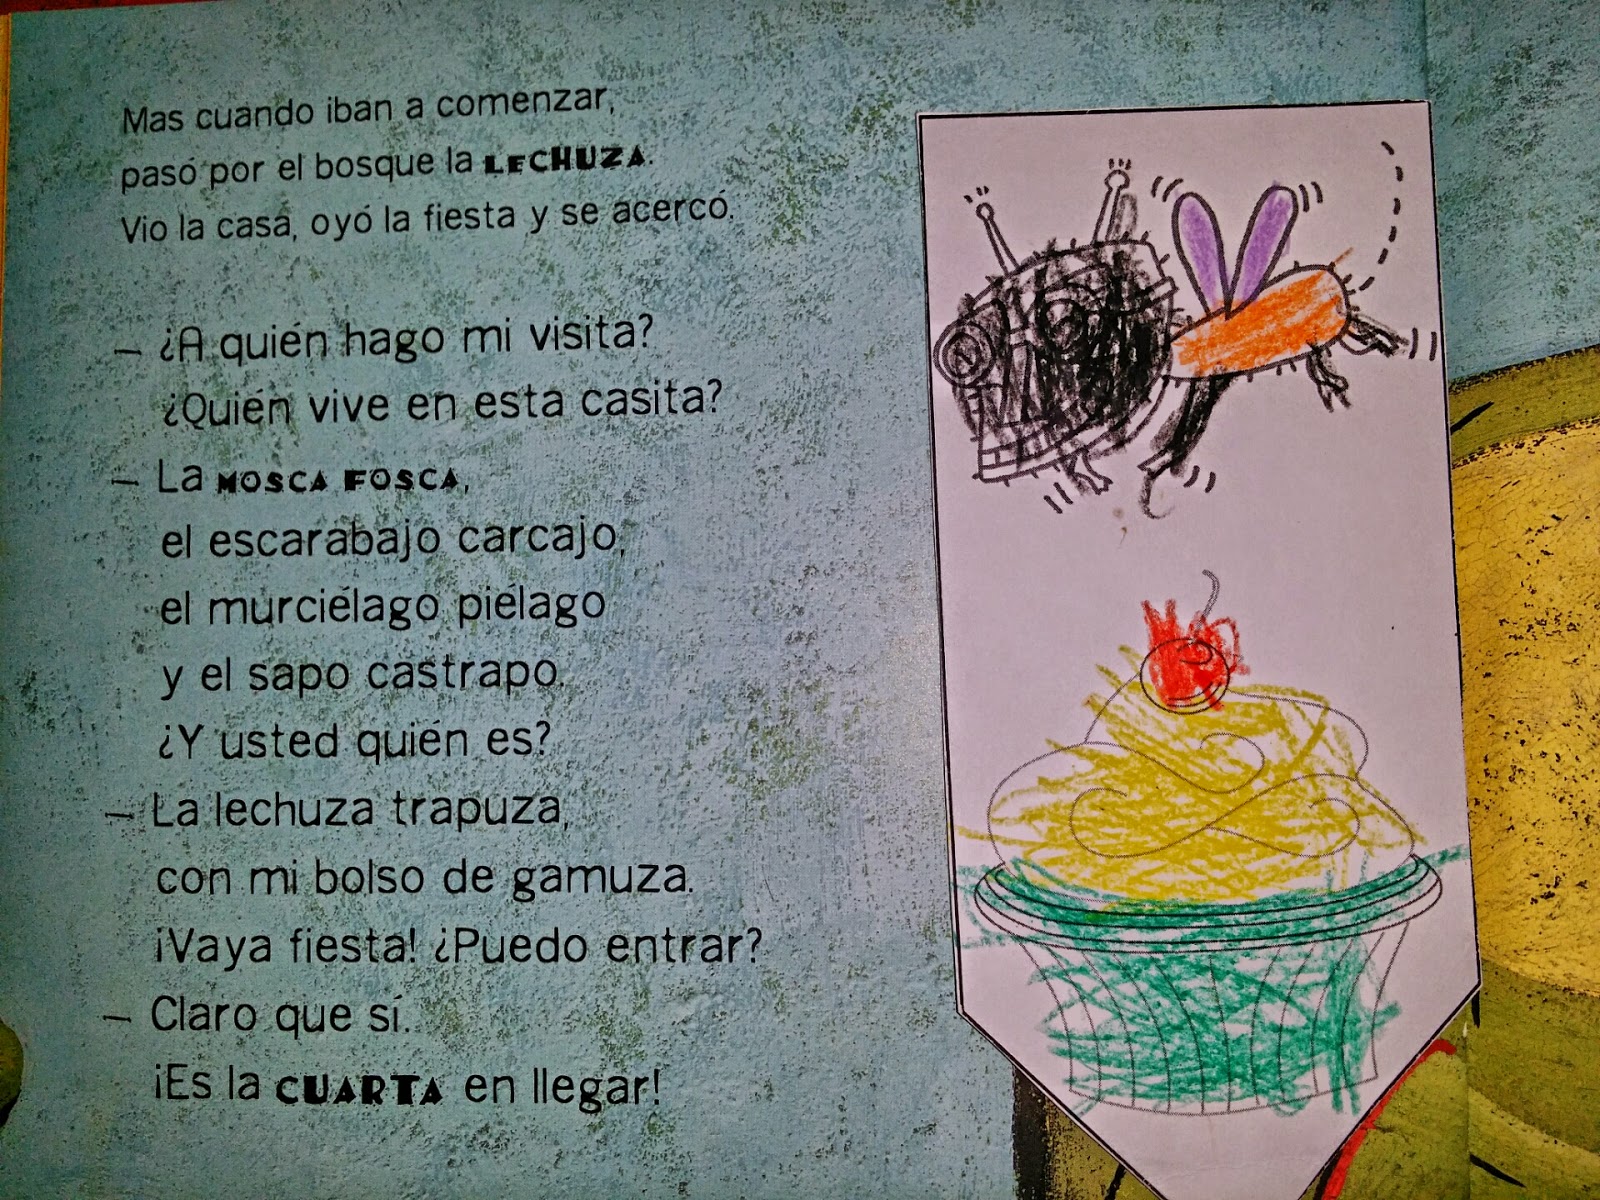 Mas cuando iban a comenzar,
pasó por el bosque la LECHUZA.
Vio la casa, oyó la fiesta y se acercó.
– ¿A quién hago mi visita?
¿Quién vive en esta casita?
– La MOSCA FOSCA,
el escarabajo carcajo,
el murciélago piélago
y el sapo castrapo.
¿Y usted quién es?
– La lechuza trapuza,
con mi bolso de gamuza.
¡Vaya fiesta! ¿Puedo entrar?
– Claro que sí.
¡Es la CUARTA en llegar!